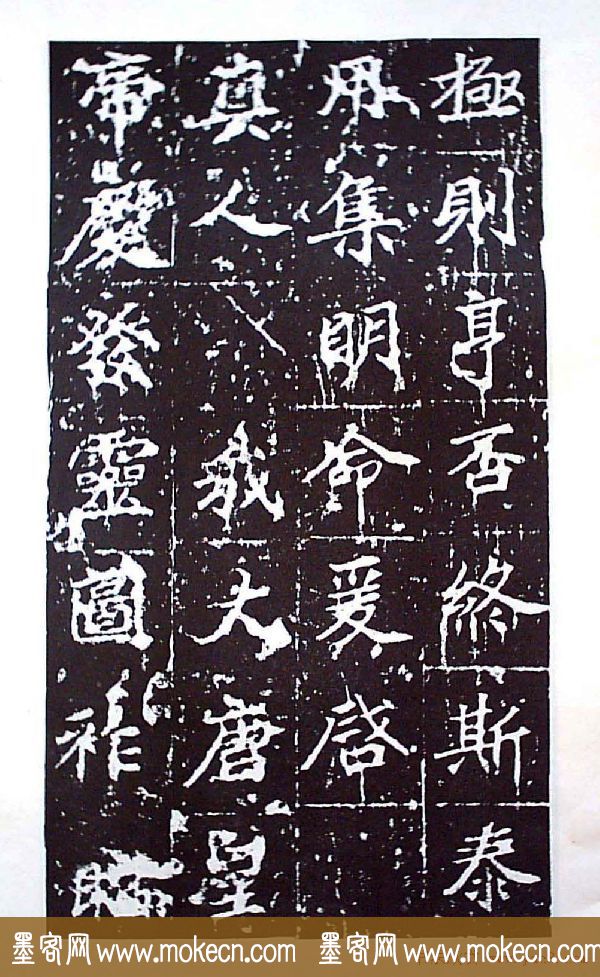 極則亨否終斯泰
用集明命爰啓
真人我大唐皇
帝慶發靈圖祚
墨客网 www.mokecn.com 墨客网 www.mokecn.com